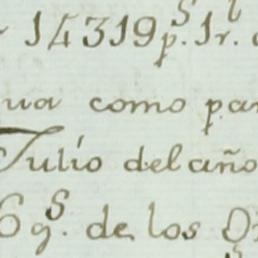 14319 p.s 1 r.l
como par
Julio del año
6 g.s de los